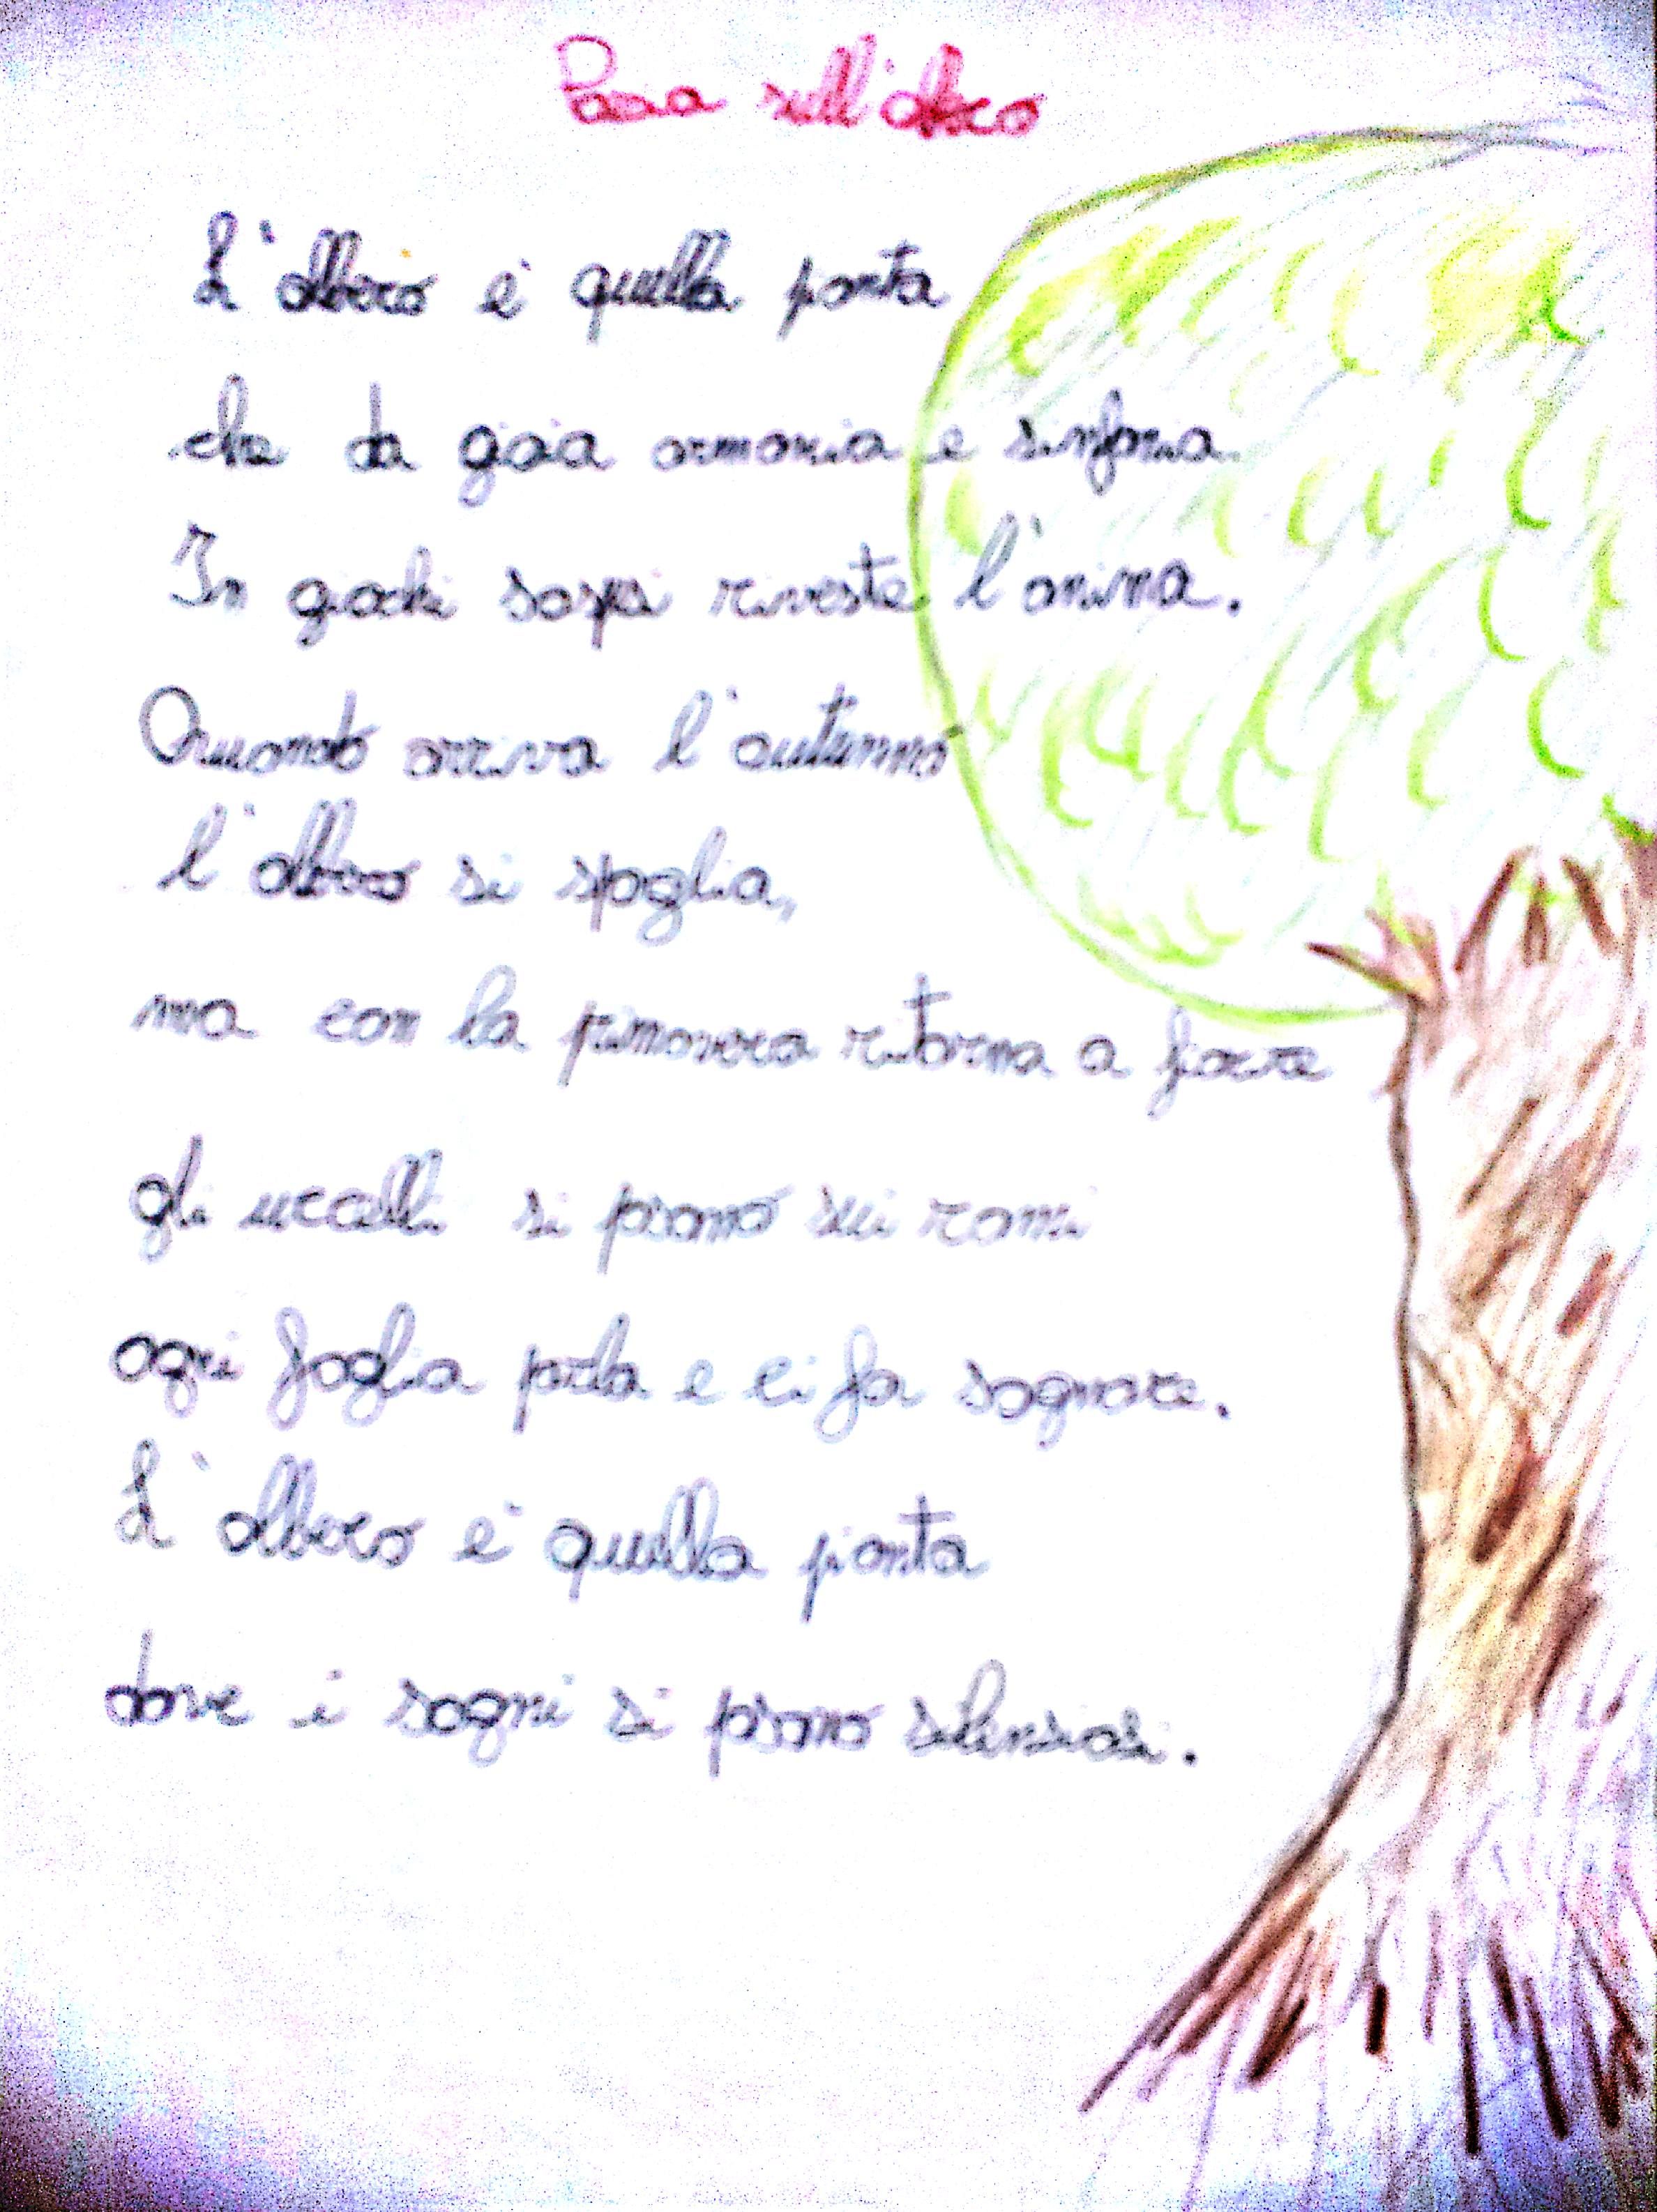 Poesia sull'albero
L'albero è quella pianta
che da gioia armonia e sinfonia.
In giochi sospesi riveste l'anima.
Quando arriva l'autunno
l'albero si spoglia,
ma con la primavera ritorna a fiorire
gli uccelli si posano sui rami
ogni foglia parla e ci fa sognare.
L'albero è quella pianta
dove i sogni si posano silenziosi.